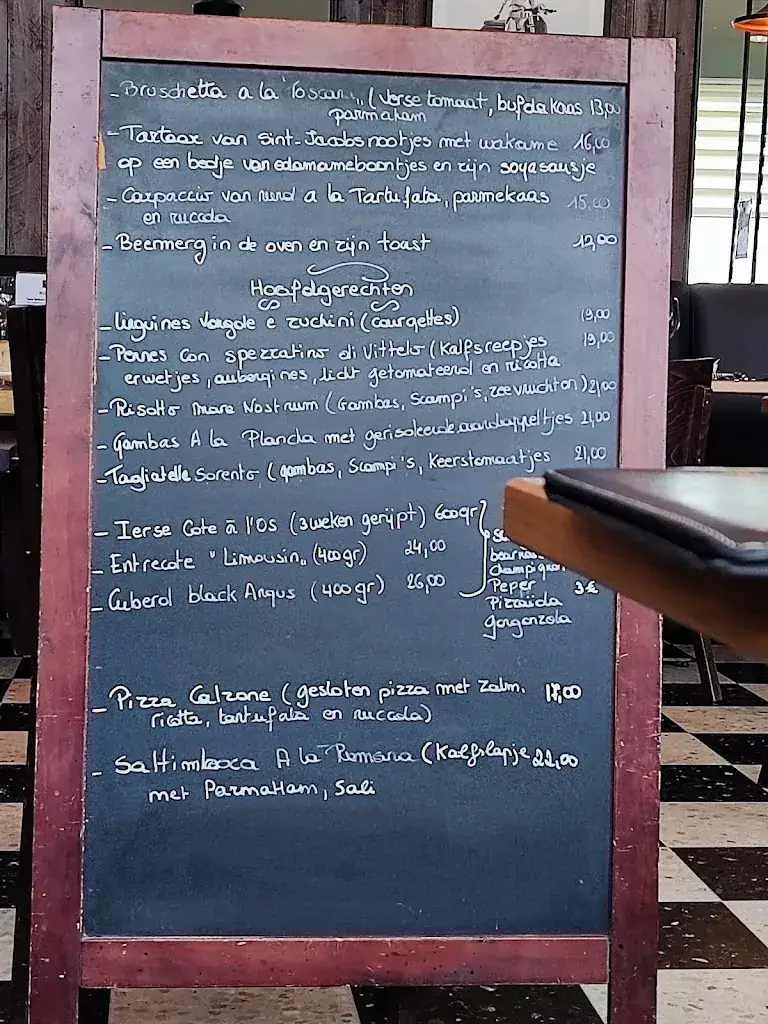 - Bruschetta a la "Toscana" (verse tomaat, bufdakaas 13,00
parmaham
- Tartaar van Sint-Jacobsnootjes met wakame 16,00
op een bedje van edamameboontjes en zijn soyasausje
- Carpaccio van rund a la Tartufata, parmekaas 15,00
en ruccola
- Beenmerg in de oven en zijn toast 12,00
Hoofdgerechten
- Linguines Vongole e zuchini (courgettes) 19,00
- Pennes con spezzatino di Vittelo (Kalfsreepjes 19,00
erwtjes, aubergines, licht getomateerd en ricotta
- Risotto Mare Nostrum (Gambas, Scampi's, zeevruchten) 21,00
- Gambas A la Plancha met gerissoleerde aardappeltjes 21,00
- Tagliatelle Sorento (gambas, Scampi's, Keerstomaatjes 21,00
- Ierse Cote à l'Os (3 weken gerijpt) 600gr
- Entrecote "Limousin" (400gr) 24,00
- Cuberol black Angus (400gr) 26,00
champignon
Peper 3€
Pizzaiola
gorgonzola
- Pizza Calzone (gesloten pizza met zalm, 18,00
ricotta, tartufata en ruccola)
- Saltimbocca A la Romana (Kalfslapje 22,00
met ParmaHam, Sali